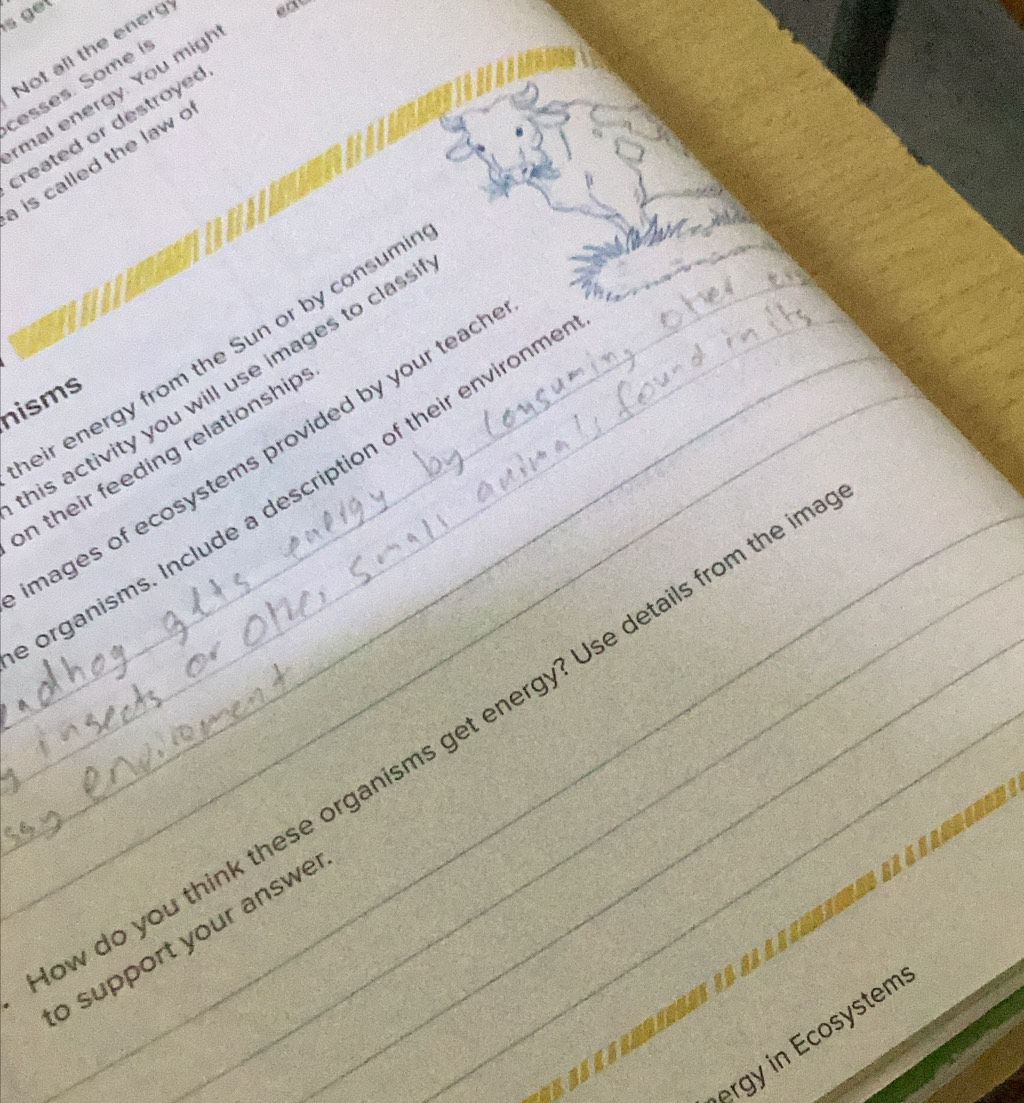 s get
Not all the energy
ocesses. Some is
ermal energy. You might
created or destroyed.
ea is called the law of
nisms
their energy from the Sun or by consuming
n this activity you will use images to classify
on their feeding relationships.
e images of ecosystems provided by your teacher.
he organisms. Include a description of their environment.
gets energy by consuming other
insects or other small animals found in its
enviroment
How do you think these organisms get energy? Use details from the image
to support your answer.
nergy in Ecosystems